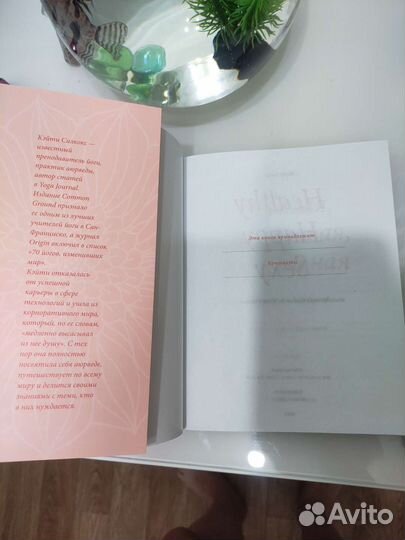 Кэйти Силкокс —
известный
преподаватель йоги,
практик аюрведы,
автор статей
в Yoga Journal.
Издание Common
Ground признало
ее одним из лучших
учителей йоги в Сан-
Франциско, а журнал
Origin включил в список
«70 йогов, изменивших
мир».
Кэйти отказалась
от успешной
карьеры в сфере
технологий и ушла из
корпоративного мира,
который, по ее словам,
«медленно высасывал
из нее душу». С тех
пор она полностью
посвятила себя аюрведе,
путешествует по всему
миру и делится своими
знаниями с теми, кто
в них нуждается.
Эта книга принадлежит
Контакты
Healthy
Avito